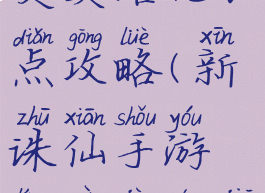 diǎn gōng lüè xīn
点攻略(新
zhū xiān shǒu yóu
诛仙手游